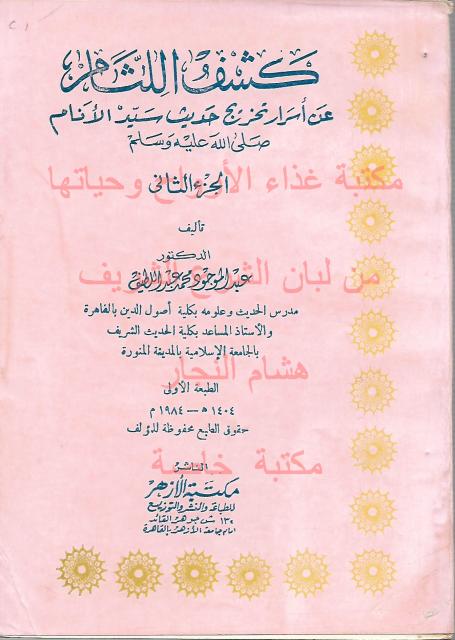 C1
كشف اللثام
عن أسرار تخريج حديث سيد الأنام
صلى الله عليه وسلم
مكتبة غذاء الأرواح وحياتها
الجزء الثانى
تأليف
الدكتور
عبد الموجود محمد عبد اللطيف
من لبان الشرع الشريف
مدرس الحديث وعلومه بكلية أصول الدين بالقاهرة
والأستاذ المساعد بكلية الحديث الشريف
بالجامعة الإسلامية بالمدينة المنورة
هشام النجار
الطبعة الأولى
١٤٠٤ ه — ١٩٨٤ م
حقوق الطبع محفوظة للمؤلف
مكتبة خاصة
الناشر
مكتبة الأزهر
للطباعة والنشر والتوزيع
١٣٢ ش جوهر القائد
امام جامعة الأزهر بالقاهرة